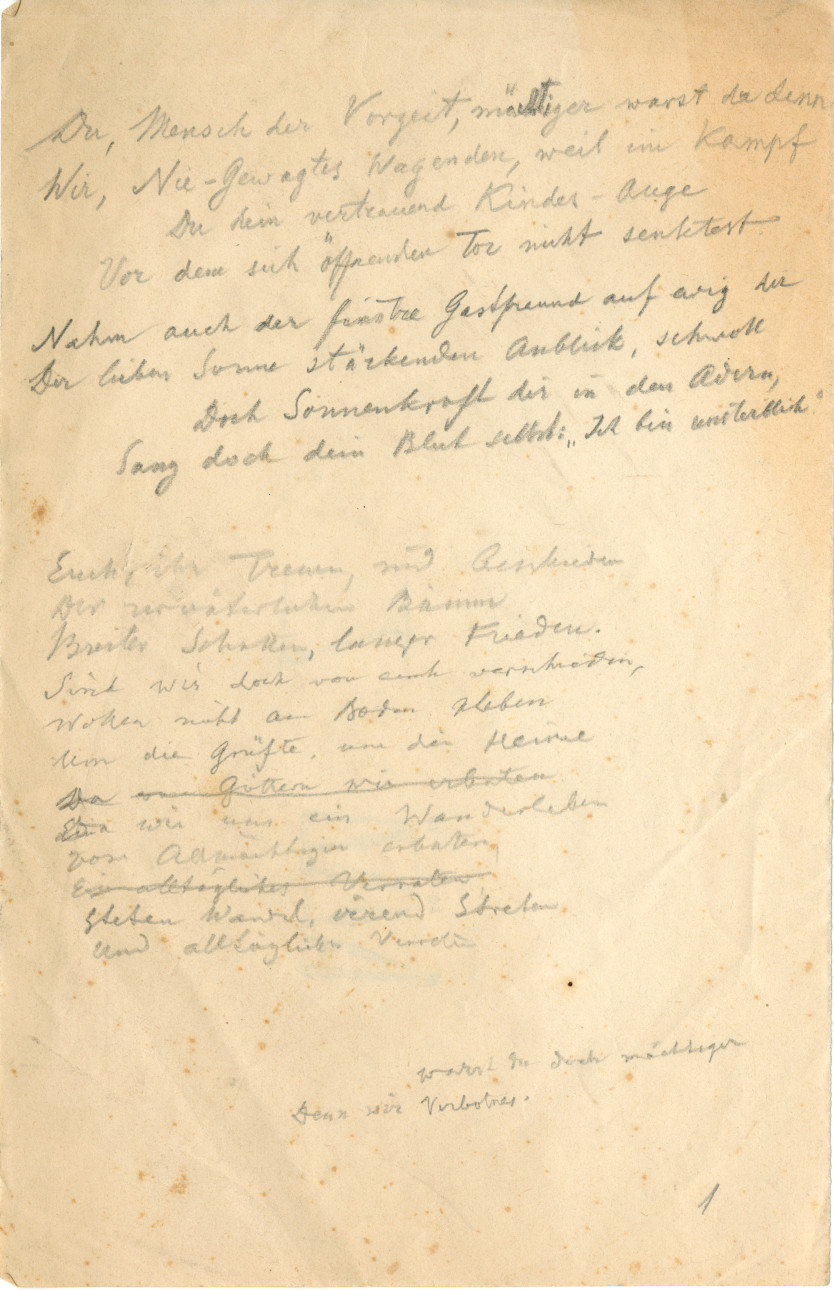 Du, Mensch der Vorzeit, mächtiger warst du denn
Wir, Nie-Gewagtes Wagenden, weil im Kampf
Du dein vertrauend Kindes-Auge
Vor dem sich öffnenden Tor nicht senktest.
Nahm auch der finstre Gastfreund auf ewig dir
Der lieben Sonne stärkenden Anblick, schwoll
Doch Sonnenkraft dir in den Adern,
Sang doch dein Blut selbst: „Ich bin unsterblich.“
Euch, ihr Treuen, sind beschieden
Der urväterlichen Bäume
Breiter Schatten, langer Frieden.
Sind wir doch von euch verschieden,
Wollen nicht am Boden kleben
Um die Grüfte, um die Heime
Da von Göttern wir erbaten
wir uns ein Wanderleben
vom Allmächtigen erbaten,
Ein alltägliches Verraten
Steten Wandel, irrend Streben
und alltägliches Verraten
warst du doch mächtiger
Denn wir Verbotnes.
1